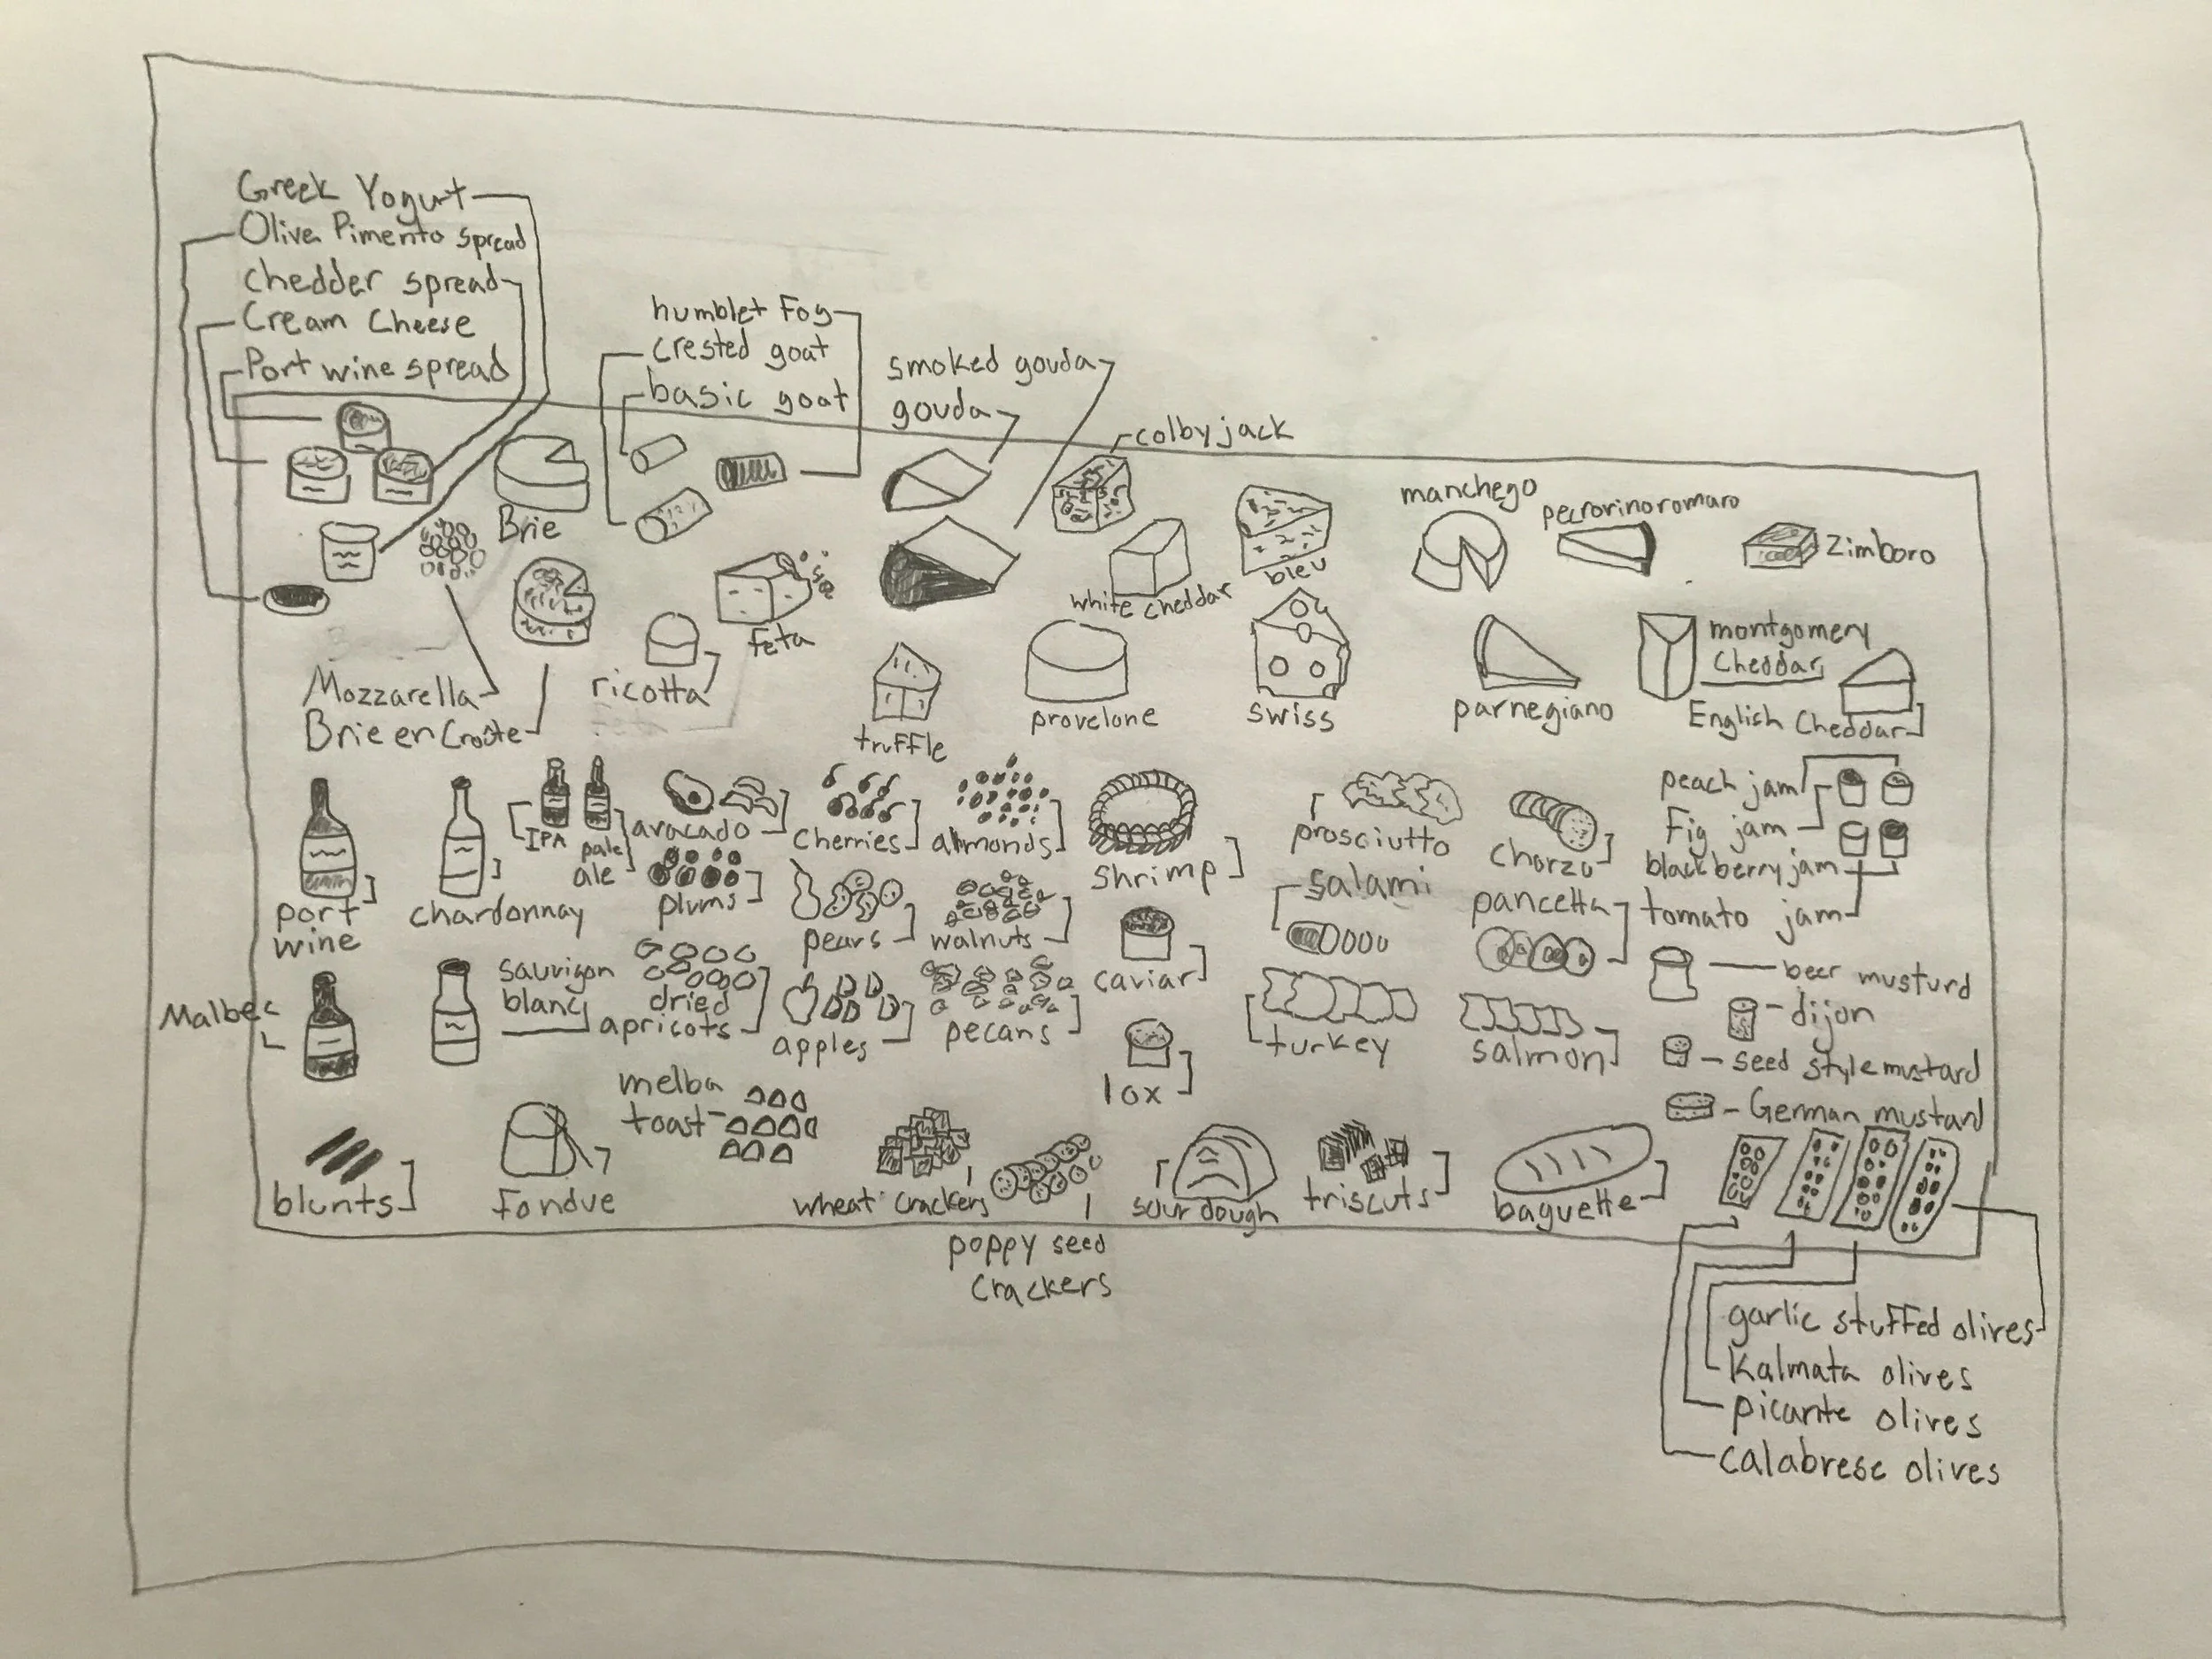 Greek Yogurt
Olive Pimento spread
Chedder spread
Cream Cheese
Port wine spread
humblet Fog
crested goat
basic goat
smoked gouda
gouda
colby jack
Brie
manchego
pecrorinoromaro
Zimboro
bleu
white cheddar
feta
Mozzarella
Brie en Croûte
ricotta
truffle
provelone
swiss
parnegiano
montgomery
Cheddar
English Cheddar
port
wine
chardonnay
IPA
pale
ale
avacado
plums
cherries
pears
almonds
walnuts
shrimp
caviar
prosciutto
chorzo
salami
pancetta
peach jam
Fig jam
blackberry jam
tomato jam
Malbec
sauvigon
blanc
dried
apricots
apples
pecans
lox
turkey
salmon
beer musturd
dijon
seed style mustard
German mustard
blunts
Fondue
melba
toast
wheat crackers
poppy seed
crackers
sour dough
triscuts
baguette
garlic stuffed olives
Kalmata olives
picante olives
calabrese olives